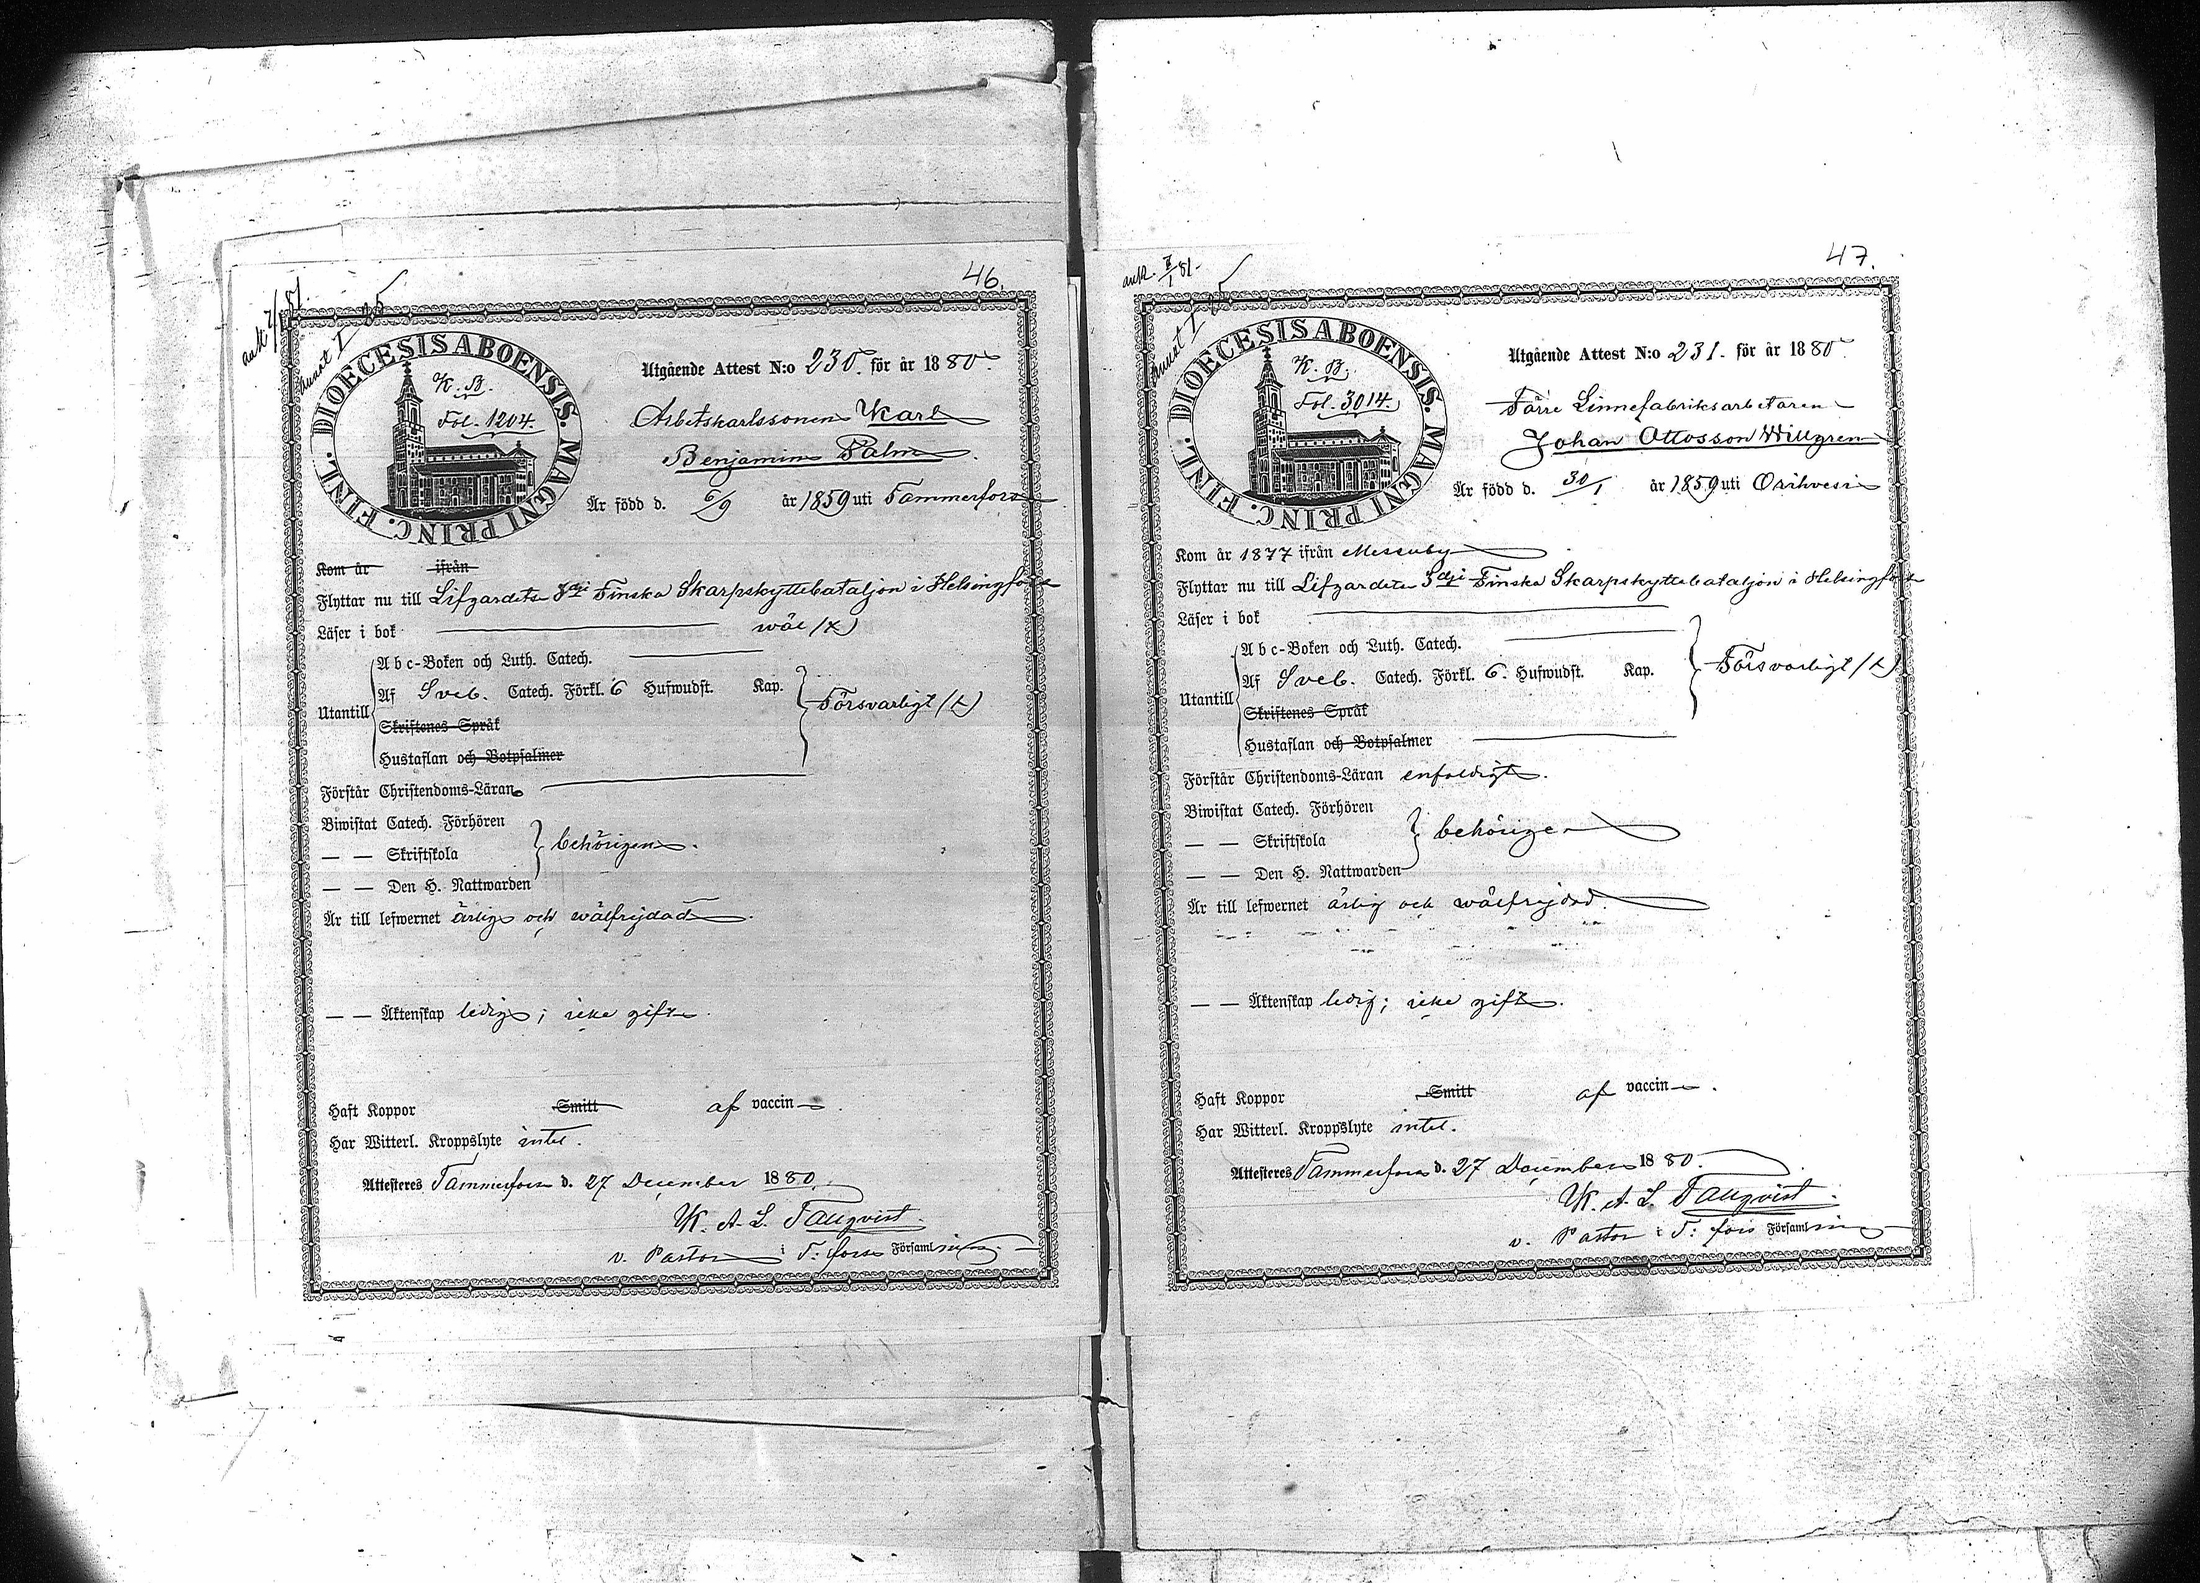 46.
ank. 7/1 81.
DIOECESIS ABOENSIS. MAGNI PRINC. FINL.
K. B.
Fol. 1204.
Utgående Attest N:o 230. för år 1880.
Arbetskarlssonen Karl
Benjamin Palm.
Är född d. 6/9 år 1859 uti Tammerfors
Kom år ifrån
Flyttar nu till Lifgardets 3dje Finska Skarpskyttebataljon i Helsingfors
Läser i bok wäl (x)
Utantill
Abc-Boken och Luth. Catech.
Af Sveb. Catech. Förkl. 6 Hufwudst. Kap.
Skriftenes Språk
Hustaflan och Botpsalmer
Försvarligt (x)
Förstår Christendoms-Läran
Biwistat Catech. Förhören
— — Skriftskola
— — Den H. Nattwarden
behörigen.
Är till lefwernet ärlig och wälfrejdad.
— — Äktenskap ledig; icke gift.
Haft Koppor Smitt af vaccin.
Har Witterl. Kroppslyte intet.
Attesteres Tammerfors d. 27 December 1880.
K. A. L. Tallqvist.
v. Pastor i T:fors Församling.
47.
ank. 7/1 81.
DIOECESIS ABOENSIS. MAGNI PRINC. FINL.
K. B.
Fol. 3014.
Utgående Attest N:o 231. för år 1880.
Förre Linnefabriksarbetaren
Johan Ottosson Willgren
Är född d. 30/1 år 1859 uti Orihvesi
Kom år 1877 ifrån Messuby
Flyttar nu till Lifgardets 3dje Finska Skarpskyttebataljon i Helsingfors
Läser i bok
Utantill
Abc-Boken och Luth. Catech.
Af Sveb. Catech. Förkl. 6. Hufwudst. Kap.
Skriftenes Språk
Hustaflan och Botpsalmer
Försvarligt (x)
Förstår Christendoms-Läran enfaldigt.
Biwistat Catech. Förhören
— — Skriftskola
— — Den H. Nattwarden
behörigen
Är till lefwernet ärlig och wälfrejdad.
— — Äktenskap ledig; icke gift.
Haft Koppor Smitt af vaccin.
Har Witterl. Kroppslyte intet.
Attesteres Tammerfors d. 27 December 1880.
K. A. L. Tallqvist.
v. Pastor i T:fors Församling